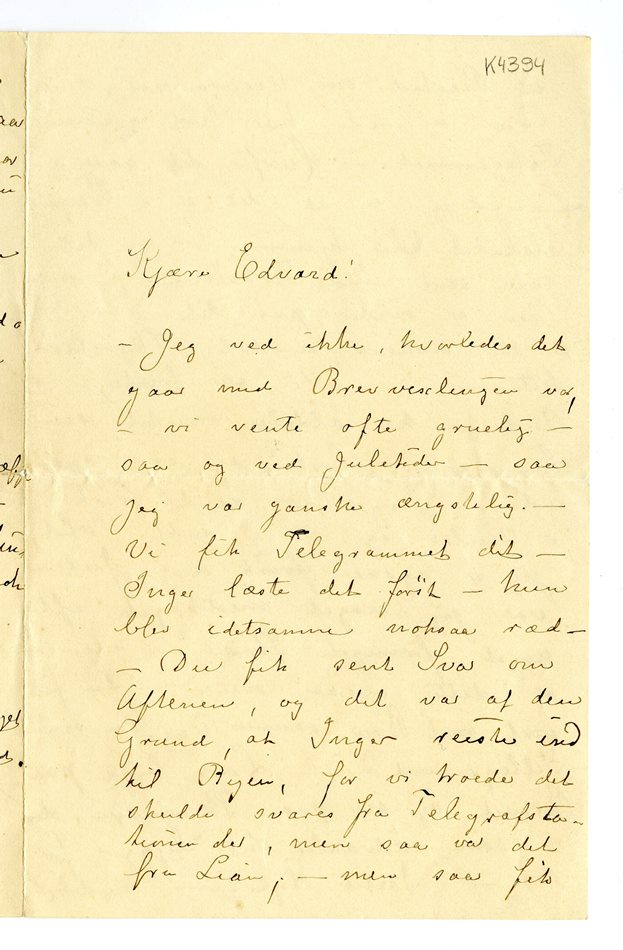 K4394
Kjære Edvard!
– Jeg ved ikke, hvorledes det
gaar med Brevvexlingen vor,
– vi vente ofte gruelig –
saa og ved Juletider – saa
jeg var ganske ængstelig. –
Vi fik Telegrammet dit –
Inger læste det først – hun
blev idetsamme noksaa ræd –
– Du fik sent Svar om
Aftenen, og det var af den
Grund, at Inger reiste ind
til Byen, for vi troede det
skulde svares fra Telegrafsta-
tionen der, men saa var det
fra Lian; – men saa fik